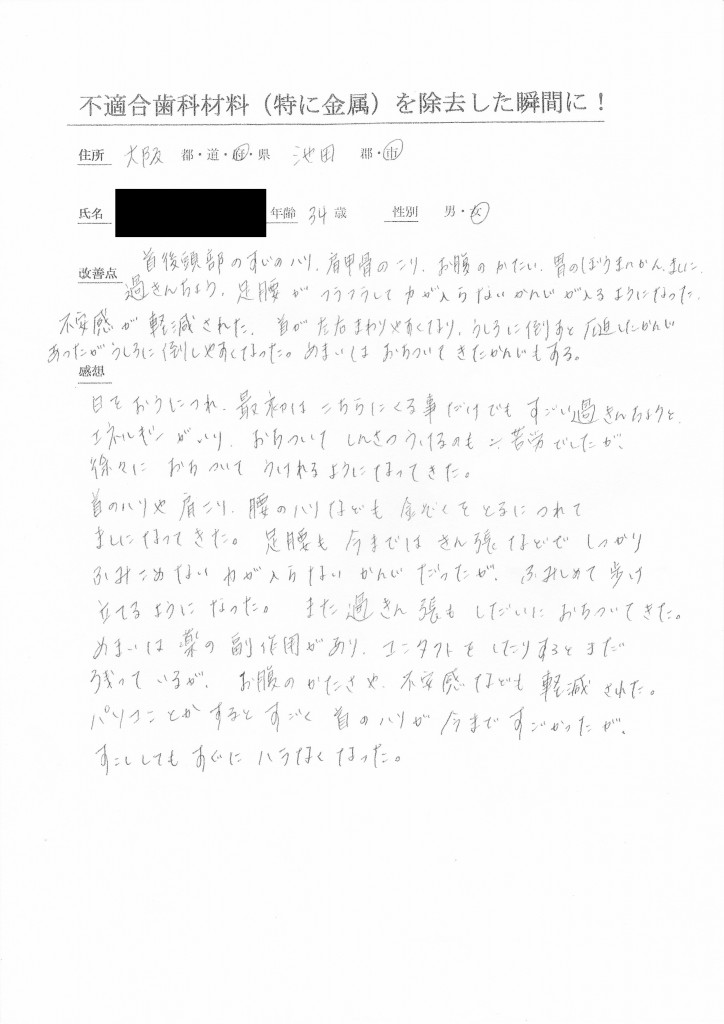 不適合歯科材料（特に金属）を除去した瞬間に！
住所 大阪 都・道・府・県 池田 郡・市
氏名 年齢 34 歳 性別 男・女
首後頭部のすじのハリ、肩甲骨のこり、お腹のかたい、胃のぼうまんかん、ましに、
改善点
過きんちょう、足腰がフラフラして力が入らないかんじが入るようになった、
不安感が軽減された、首が左右まわりやすくなり、うしろに倒すと圧迫したかんじ
あったがうしろに倒しやすくなった。めまいはおちついてきたかんじもある。
感想
日をおうにつれ、最初はこちらにくる事だけでもすごい過きんちょうと、
エネルギーがいり、おちついてしんさつうけるのも一苦労でしたが、
徐々におちついてうけれるようになってきた。
首のハリや肩こり、腰のハリなども金ぞくをとるにつれて
ましになってきた。足腰も今まではきん張などでしっかり
ふみこめない力が入らないかんじだったが、ふみしめて歩け
立てるようになった。また過きん張もしだいにおちついてきた。
めまいは薬の副作用があり、コンタクトをしたりするとまだ
残っているが、お腹のかたさや、不安感なども軽減された。
パソコンとかするとすごく首のハリが今まですごかったが、
すこししてもすぐにハラなくなった。